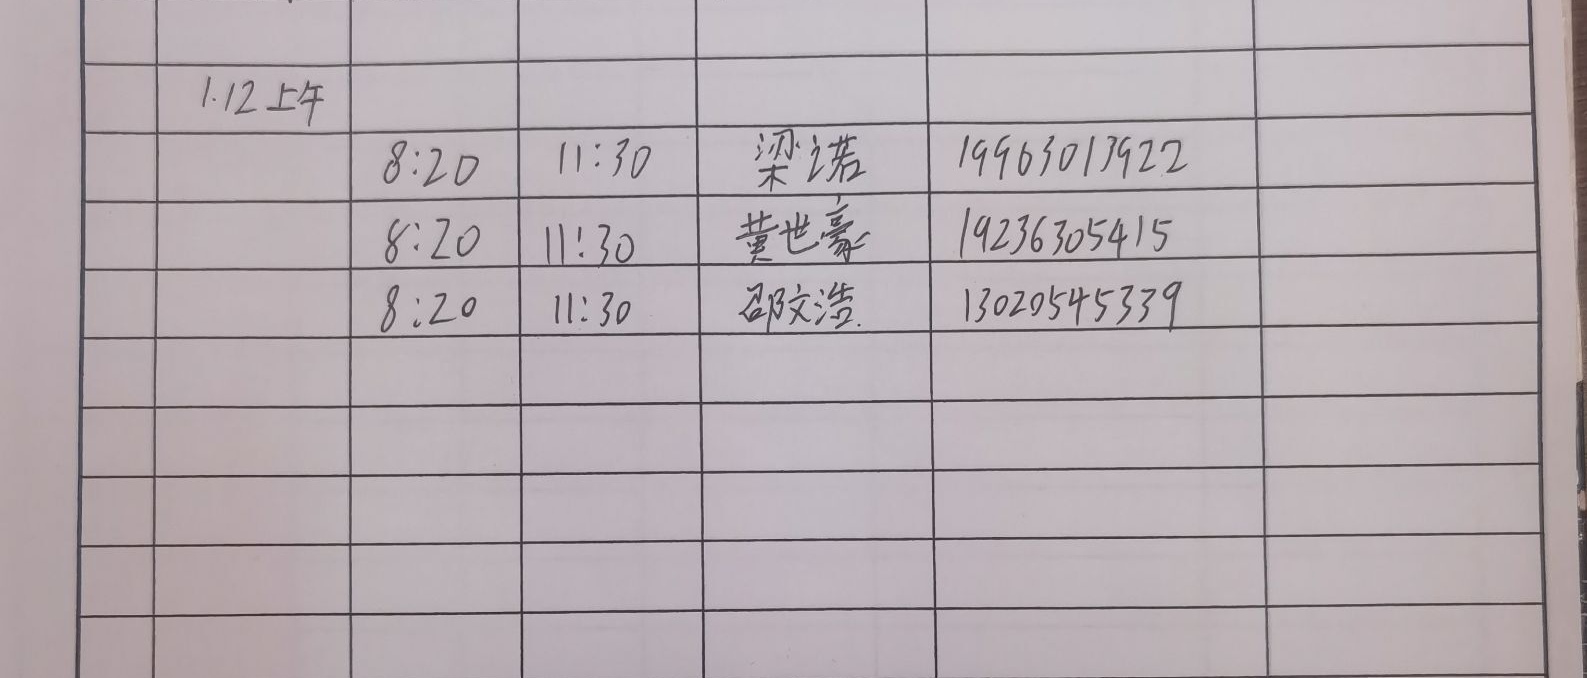 1.12上午
8:20 11:30 梁诺 19963013922
8:20 11:30 黄世豪 19236305415
8:20 11:30 邵文浩 13020545339